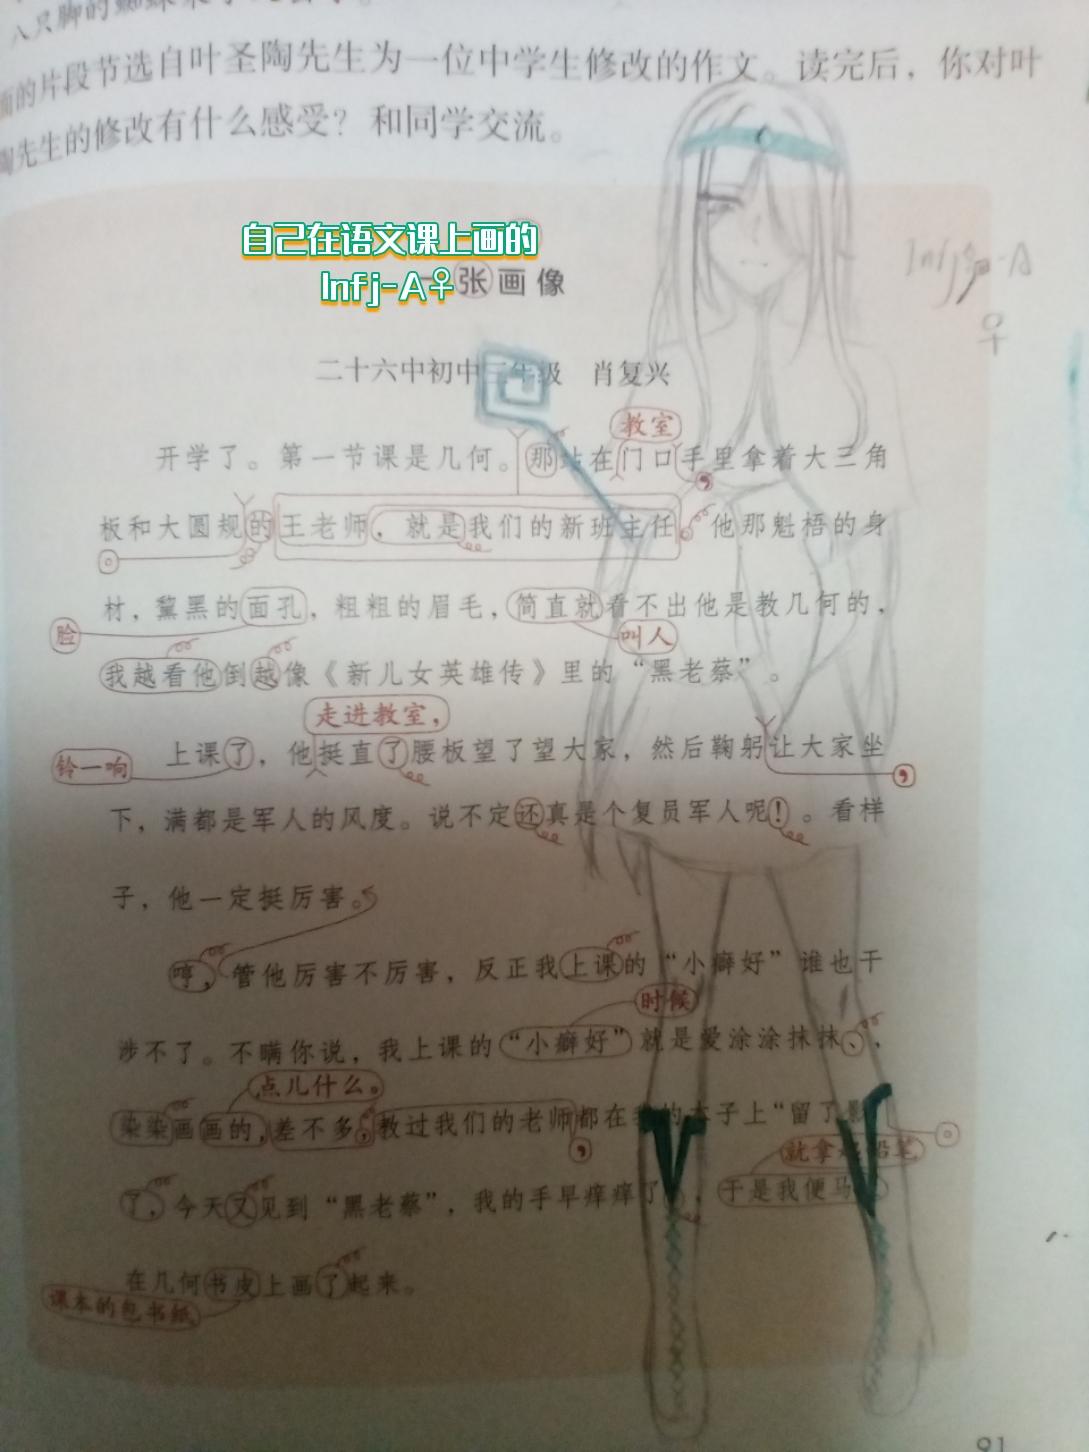 八只脚的
面的片段节选自叶圣陶先生为一位中学生修改的作文。读完后，你对叶
陶先生的修改有什么感受？和同学交流。
自己在语文课上画的
Infj-A♀
一张画像
Infj-A
♀
二十六中初中三年级 肖复兴
教室
开学了。第一节课是几何。那站在门口手里拿着大三角
，
板和大圆规的王老师，就是我们的新班主任。他那魁梧的身
材，黧黑的面孔，粗粗的眉毛，简直就看不出他是教几何的，
脸
叫人
我越看他倒越像《新儿女英雄传》里的“黑老蔡”。
走进教室，
铃一响
上课了，他挺直了腰板望了望大家，然后鞠躬让大家坐
，
下，满都是军人的风度。说不定还真是个复员军人呢！。看样
子，他一定挺厉害。
哼，管他厉害不厉害，反正我上课的“小癖好”谁也干
时候
涉不了。不瞒你说，我上课的“小癖好”就是爱涂涂抹抹、，
点儿什么。
染染画画的，差不多，教过我们的老师都在我的本子上“留了影
，
就拿起铅笔
了，今天又见到“黑老蔡”，我的手早痒痒了，于是我便马
在几何书皮上画了起来。
课本的包书纸
91